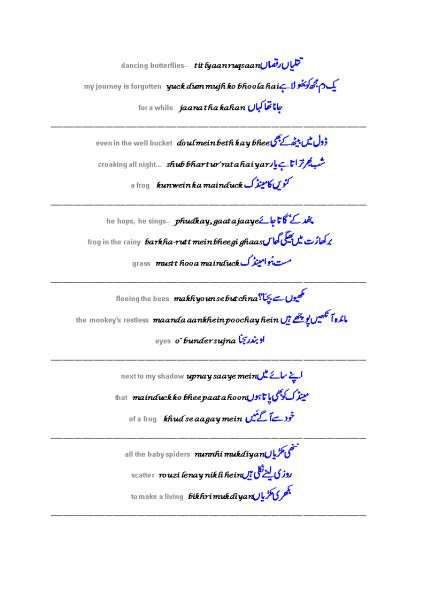 dancing butterflies-- titlyaan ruqsaan تتلیاں رقصاں
my journey is forgotten yuck dum mujh ko bhoola hai یک دم مجھ کو بھولا ہے
for a while jaana tha kahan جانا تھا کہاں
even in the well bucket doul mein beth kay bhee ڈول میں بیٹھ کے بھی
croaking all night... shub bhar tur'rata hai yar شب بھر ٹراتا ہے یار
a frog kunwein ka mainduck کنویں کا مینڈک
he hops, he sings.. phudkay, gaata jaaye پھدکے گاتا جائے
frog in the rainy barkha-rutt mein bheegi ghaas برکھا رُت میں بھیگی گھاس
grass mustt hooa mainduck مست ہوا مینڈک
fleeing the bees makhyoun se butchna مکھیوں سے بچنا؟
the monkey's restless maanda aankhein poochay hein ماندہ آنکھیں پوچھے ہیں
eyes o' bunder sujna او بندر سجنا
next to my shadow upnay saaye mein اپنے سائے میں
that mainduck ko bhee paata hoon مینڈک کو بھی پاتا ہوں
of a frog khud se aagay mein خود سے آگے میں
all the baby spiders nunnhi mukdiyan ننھی مکڑیاں
scatter rouzi lenay nikli hein روزی لینے نکلی ہیں
to make a living bikhri mukdiyan بکھری مکڑیاں